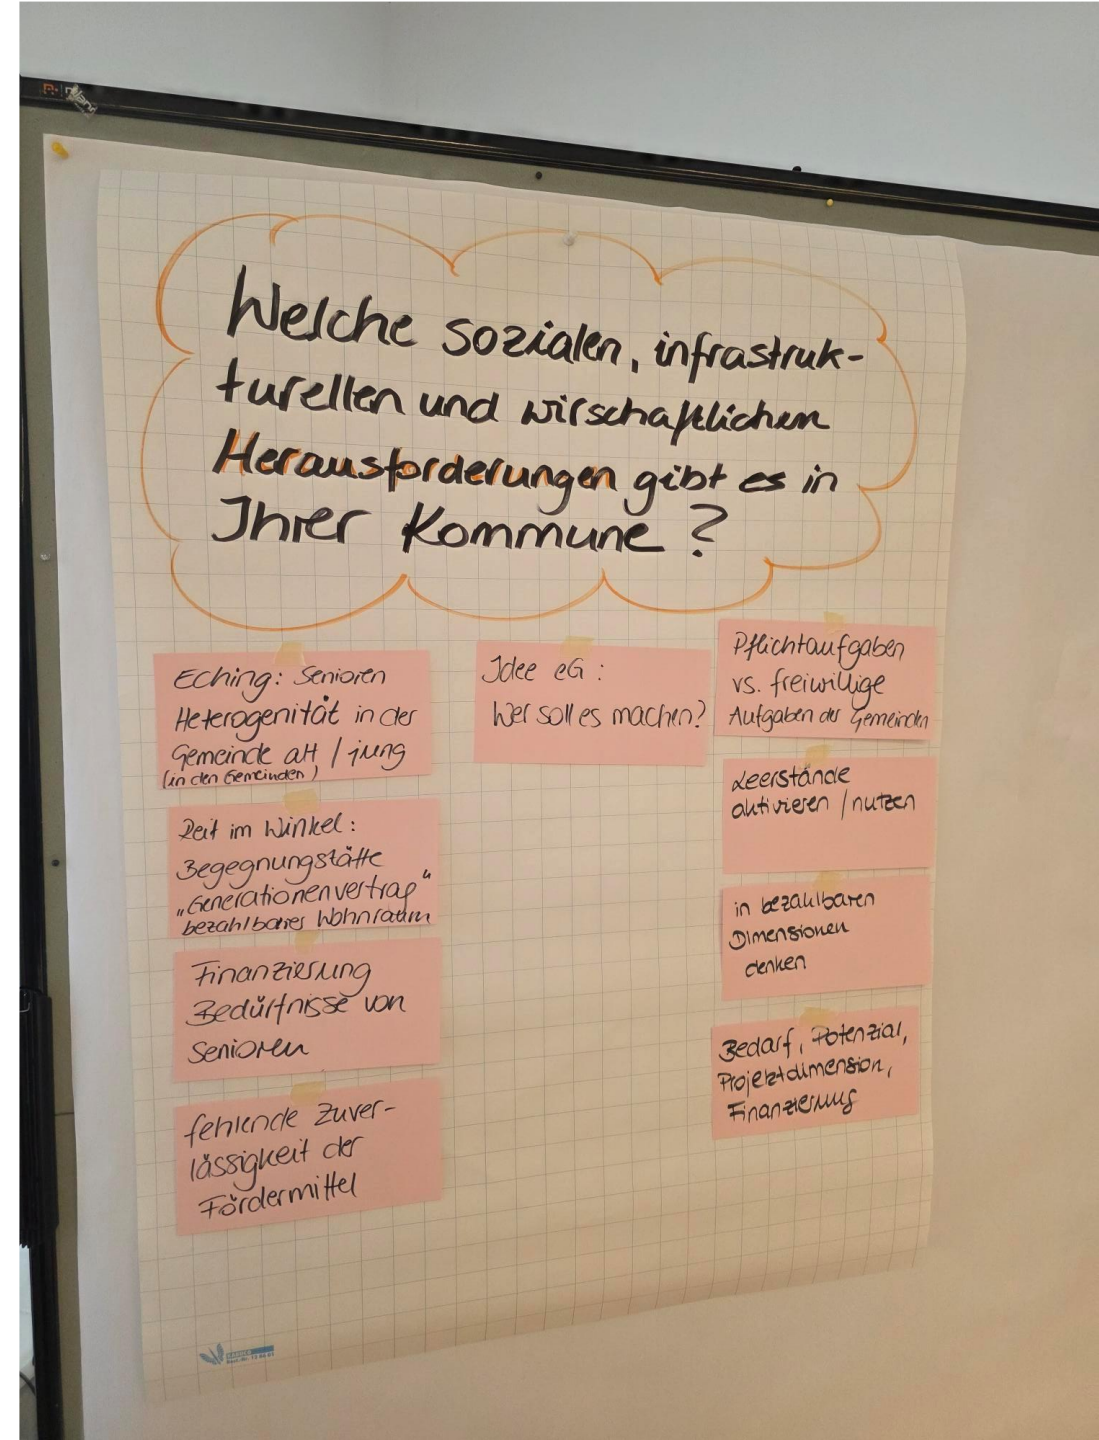 Welche sozialen, infrastruk-
turellen und wirschaftlichen
Herausforderungen gibt es in
Ihrer Kommune?
Eching: Senioren
Heterogenität in der
Gemeinde alt / jung
(in den Gemeinden)
Reit im Winkel:
Begegnungstätte
„Generationenvertrag“
bezahlbares Wohnraum
Finanzierung
Bedürfnisse von
Senioren
fehlende Zuver-
lässigkeit der
Fördermittel
Idee eG:
Wer soll es machen?
Pflichtaufgaben
vs. freiwillige
Aufgaben der Gemeinden
Leerstände
aktivieren / nutzen
in bezahlbaren
Dimensionen
denken
Bedarf, Potenzial,
Projektdimension,
Finanzierung